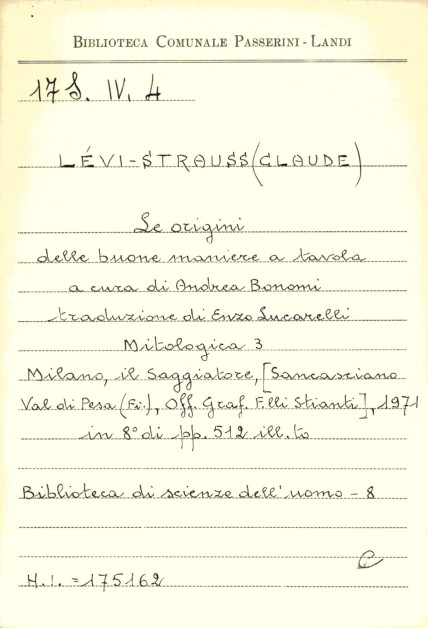 BIBLIOTECA COMUNALE PASSERINI-LANDI
17 S. IV. 4
LÉVI-STRAUSS (CLAUDE)
Le origini
delle buone maniere a tavola
a cura di Andrea Bonomi
traduzione di Enzo Lucarelli
Mitologica 3
Milano, il Saggiatore, [Sancasciano
Val di Pesa (Fi.), Off. Graf. F.lli Stianti], 1971
in 8° di pp. 512 ill.to
Biblioteca di scienze dell'uomo - 8
C
H.I. = 175162